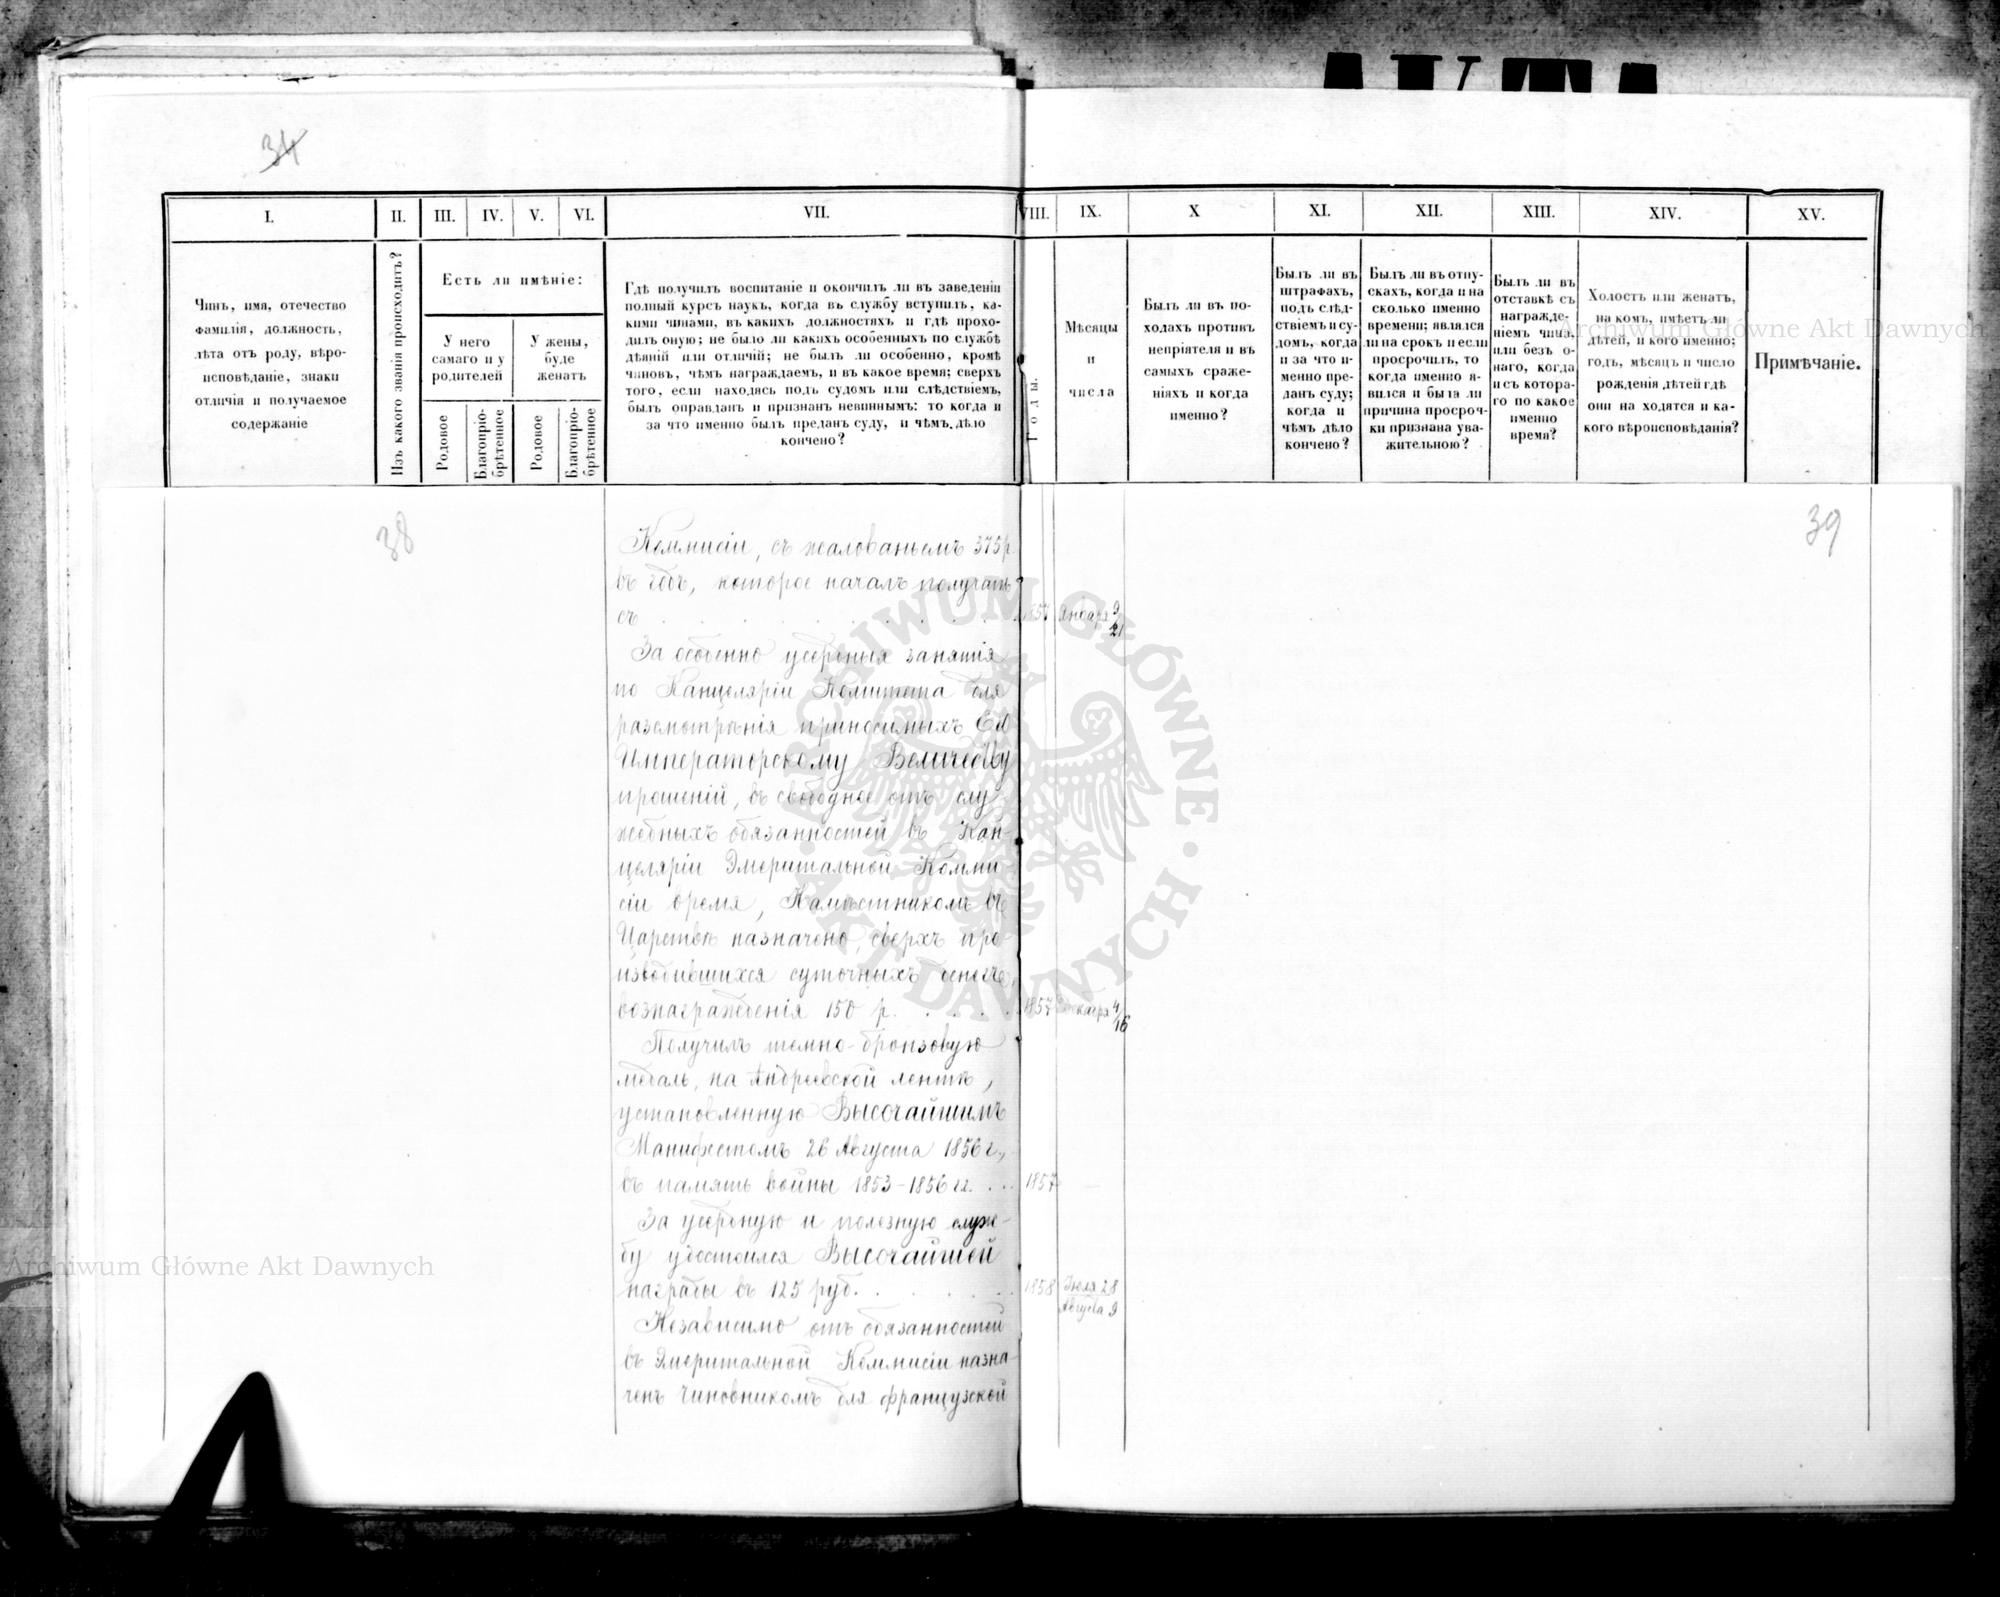 34
I.
II.
III.
IV.
V.
VI.
VII.
VIII.
IX.
X
XI.
XII.
XIII.
XIV.
XV.
Чинъ, имя, отечество
фамилія, должность,
лѣта отъ роду, вѣро-
исповѣданіе, знаки
отличія и получаемое
содержаніе
Изъ какого званія происходитъ?
Есть ли имѣніе:
У него
самаго и у
родителей
У жены,
буде
женатъ
Родовое
Благопріо-
брѣтенное
Родовое
Благопріо-
брѣтенное
Гдѣ получилъ воспитаніе и окончилъ ли въ заведеніи
полный курсъ наукъ, когда въ службу вступилъ, ка-
кими чинами, въ какихъ должностяхъ и гдѣ прохо-
дилъ оную; не было ли какихъ особенныхъ по службѣ
дѣяній или отличій; не былъ ли особенно, кромѣ
чиновъ, чѣмъ награждаемъ, и въ какое время; сверхъ
того, если находясь подъ судомъ или слѣдствіемъ,
былъ оправданъ и признанъ невиннымъ: то когда и
за что именно былъ преданъ суду, и чѣмъ дѣло
кончено?
Годы.
Мѣсяцы
и
числа
Былъ ли въ по-
ходахъ противъ
непріятеля и въ
самыхъ сраже-
ніяхъ и когда
именно?
Былъ ли въ
штрафахъ,
подъ слѣд-
ствіемъ и су-
домъ, когда
и за что и-
менно пре-
данъ суду;
когда и
чѣмъ дѣло
кончено?
Былъ ли въ отпу-
скахъ, когда и на
сколько именно
времени; являлся
ли на срокъ и если
просрочилъ, то
когда именно я-
вился и была ли
причина просроч-
ки признана ува-
жительною?
Былъ ли въ
отставкѣ съ
награжде-
ніемъ чина,
или безъ о-
наго, когда
и съ котора-
го по какое
именно
время?
Холостъ или женатъ,
на комъ, имѣетъ ли
дѣтей, и кого именно;
годъ, мѣсяцъ и число
рожденія дѣтей гдѣ
они на ходятся и ка-
кого вѣроисповѣданія?
Примѣчаніе.
38
39
Коммисіи, съ жалованьемъ 375 р.
въ годъ, которое началъ получать
съ . . . . . . . . . 1857 Января 9/21
За особенно усердныя занятія
по Канцеляріи Комитета для
разсмотрѣнія приносимыхъ ЕГО
Императорскому Величеству
прошеній, въ свободное отъ слу
жебныхъ обязанностей въ Кан-
целяріи Эмеритальной Комми-
сіи время, Намѣстникомъ въ
Царствѣ назначено, сверхъ про-
изводившихся суточныхъ денегъ,
вознагражденія 150 р. . . . . 1857 Декабря 4/16
Получилъ темно-бронзовую
медаль, на Андреевской лентѣ,
установленную Высочайшимъ
Манифестомъ 26 Августа 1856 г.,
въ память войны 1853-1856 гг. . . . 1857 —
За усердную и полезную служ-
бу удостоился Высочайшей
награды въ 125 руб. . . . . . 1858 Іюля 28
Августа 9
Независимо отъ обязанностей
въ Эмеритальной Коммисіи назна-
ченъ чиновникомъ для французской
Archiwum Główne Akt Dawnych
Archiwum Główne Akt Dawnych
ARCHIWUM GŁÓWNE AKT DAWNYCH